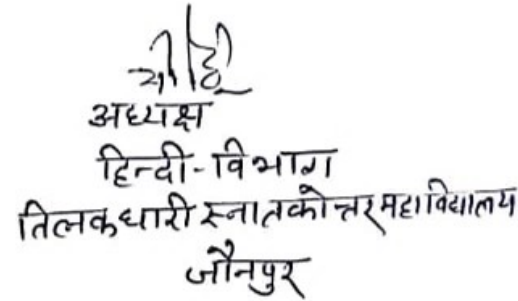 अध्यक्ष
हिन्दी-विभाग
तिलकधारी स्नातकोत्तर महाविद्यालय
जौनपुर